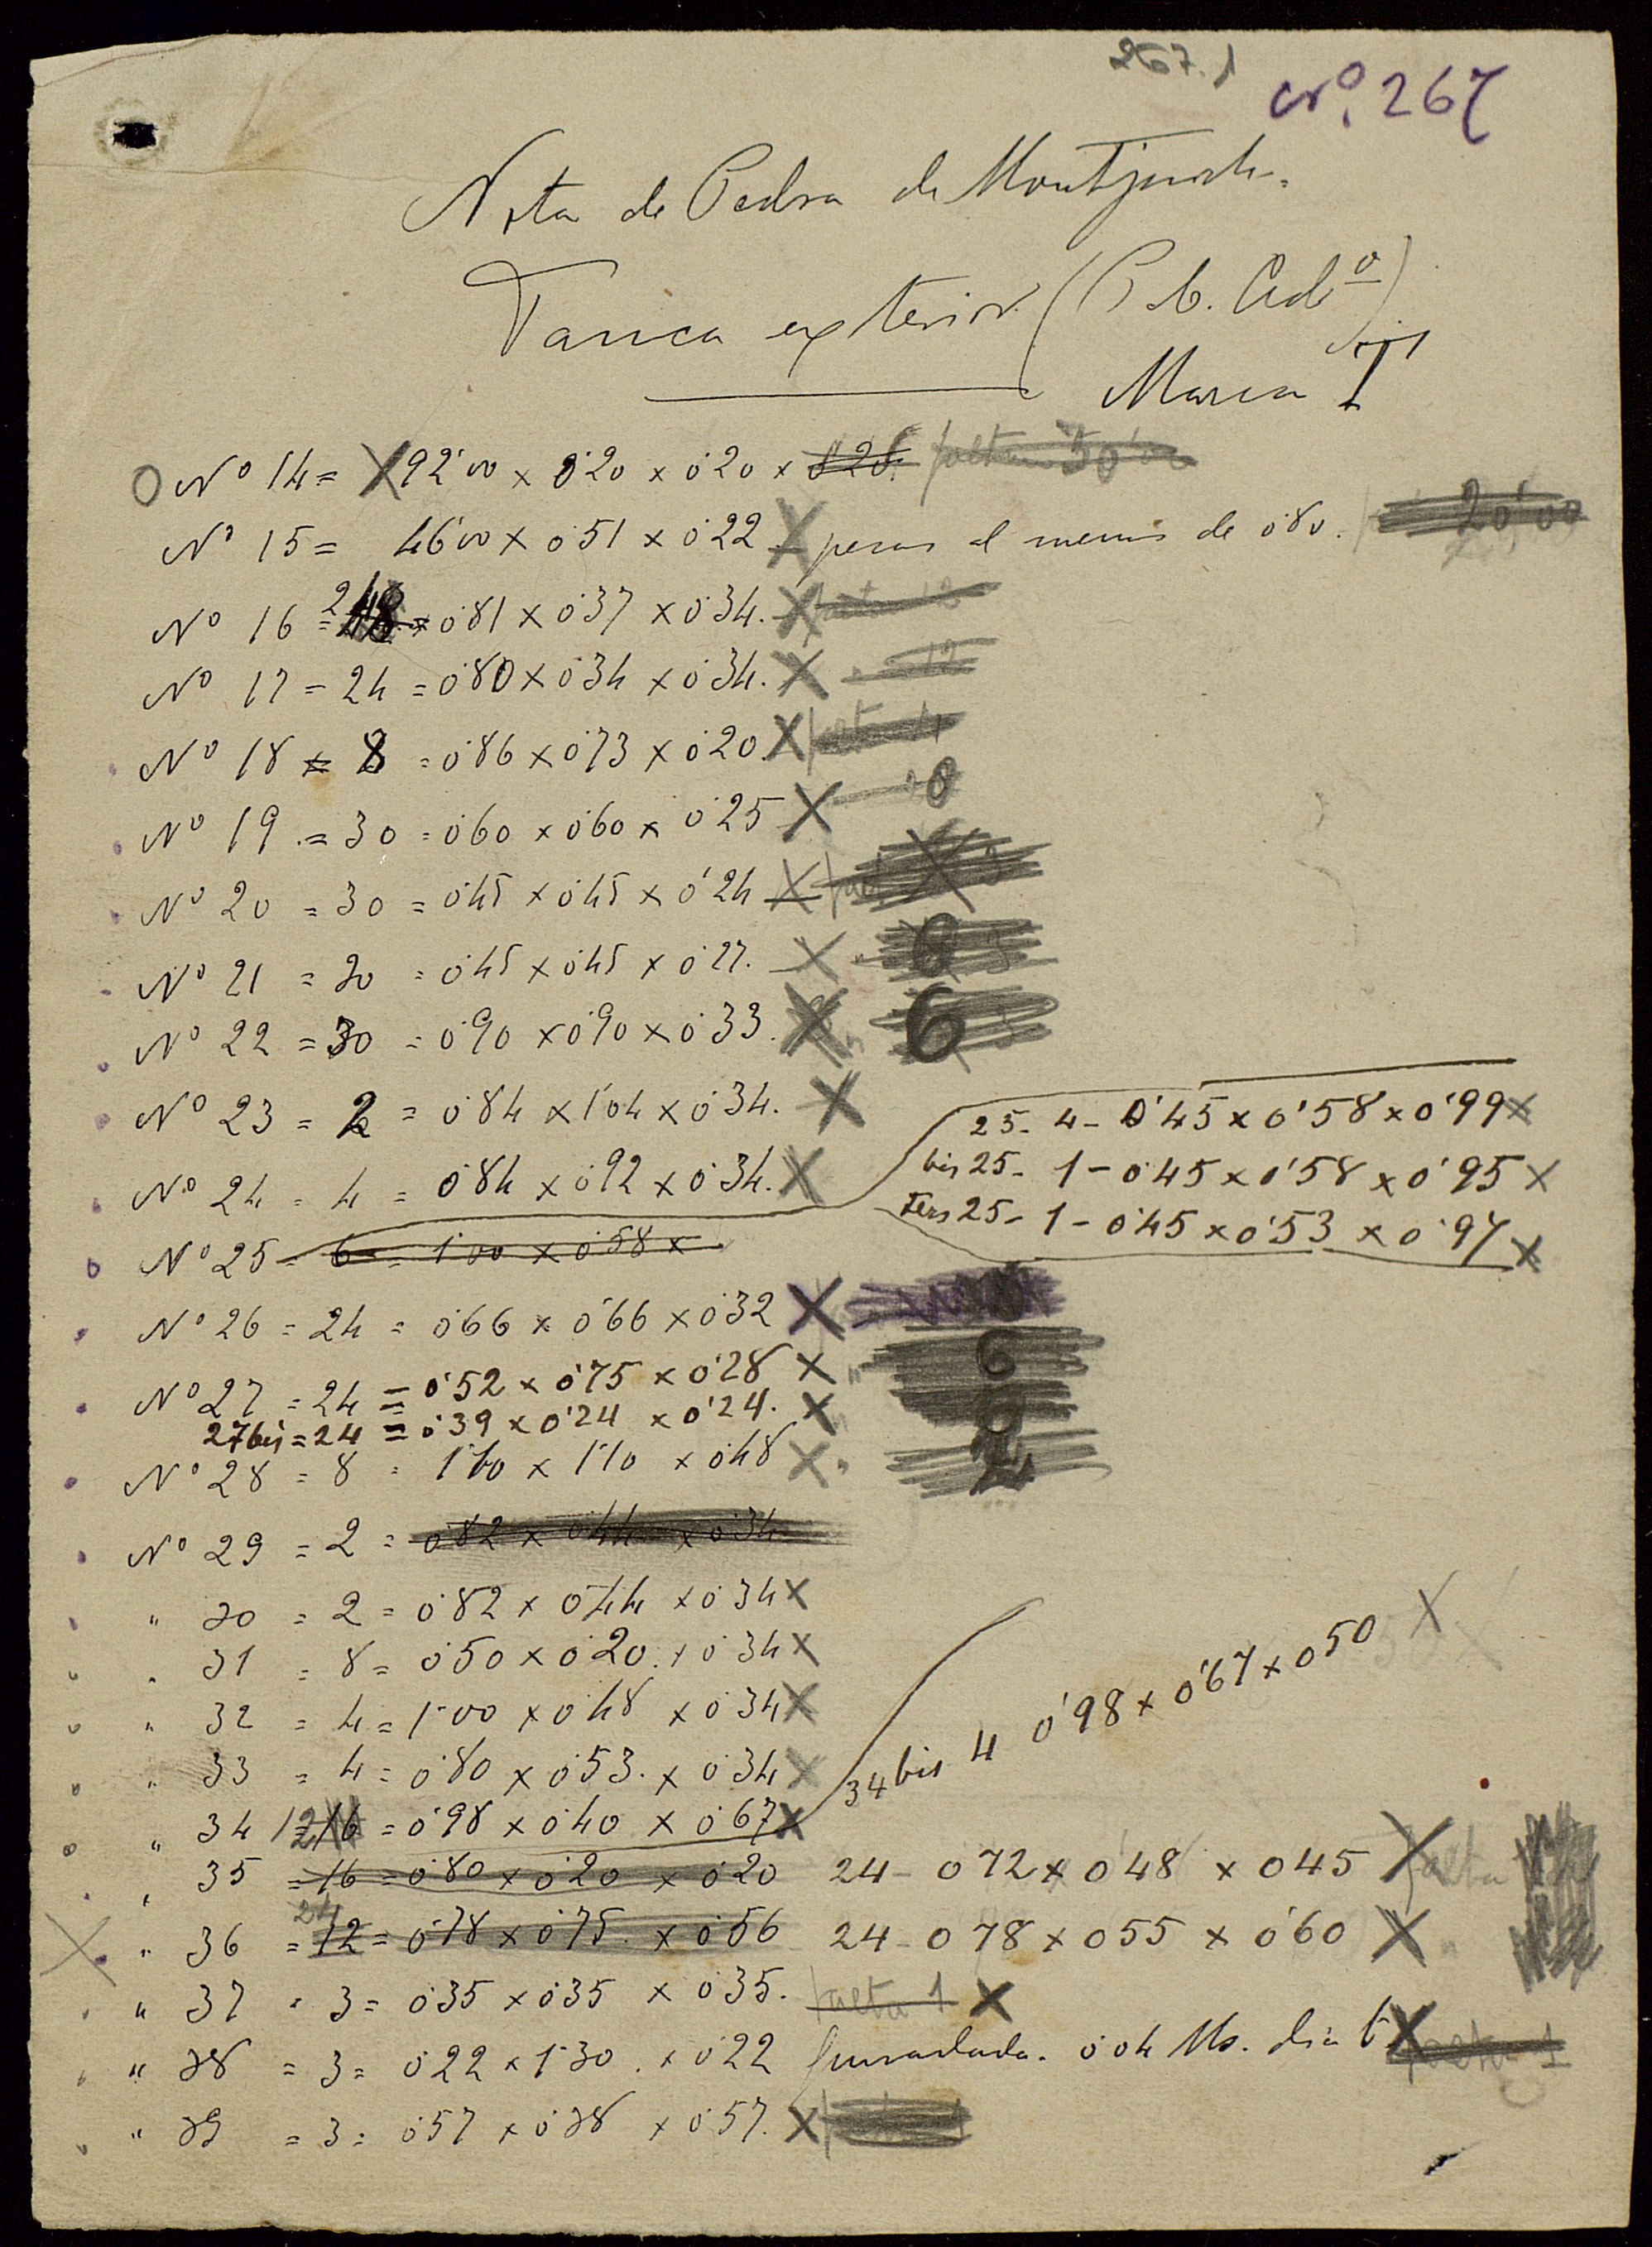 267.1
Nº. 267
Nota de Pedra de Montjuich.
Tanca exterior (P. b. Cadº)
Marca T
Nº 14 = 92'00 x 0'20 x 0'20 x
Nº 15 = 46'00 x 0'51 x 0'22 X pesas al menus de 0'80. 20'00
Nº 16 = 24 = 0'81 x 0'37 x 0'34. X
Nº 17 = 24 = 0'80 x 0'34 x 0'34. X 12
Nº 18 = 8 = 0'86 x 0'73 x 0'20. X falta 4
Nº 19 = 30 = 0'60 x 0'60 x 0'25 X
Nº 20 = 30 = 0'45 x 0'45 x 0'24 X
Nº 21 = 30 = 0'45 x 0'45 x 0'27. X
Nº 22 = 30 = 0'90 x 0'90 x 0'33. X 6
Nº 23 = 2 = 0'84 x 1'04 x 0'34. X
25 - 4 - 0'45 x 0'58 x 0'99 X
Nº 24 = 4 = 0'84 x 0'92 x 0'34. X
bis 25 - 1 - 0'45 x 0'58 x 0'95 X
Ters 25 - 1 - 0'45 x 0'53 x 0'97 X
Nº 25 = 6 = 1'00 x 0'58 x
Nº 26 = 24 = 0'66 x 0'66 x 0'32 X
Nº 27 = 24 = 0'52 x 0'75 x 0'28 X 6
27 bis = 24 = 0'39 x 0'24 x 0'24. X
Nº 28 = 8 = 1'10 x 1'10 x 0'48 X 2
Nº 29 = 2 = 0'82 x 0'44 x 0'34
" 30 = 2 = 0'82 x 0'44 x 0'34 X
" 31 = 8 = 0'50 x 0'20 x 0'34 X
" 32 = 4 = 1'00 x 0'48 x 0'34 X
" 33 = 4 = 0'80 x 0'53 x 0'34 X
34 bis 4 0'98 x 0'67 x 0'50 X
" 34 12 = 16 = 0'98 x 0'40 x 0'67 X
" 35 = 16 = 0'80 x 0'20 x 0'20 24 - 0'72 x 0'48 x 0'45 X falta
24
" 36 = 12 = 0'78 x 0'75 x 0'56 24 - 0'78 x 0'55 x 0'60 X
" 37 = 3 = 0'35 x 0'35 x 0'35. falta 1 X
" 38 = 3 = 0'22 x 1'30 x 0'22 0'04 Ms. X falta 1
" 39 = 3 = 0'57 x 0'38 x 0'57. X